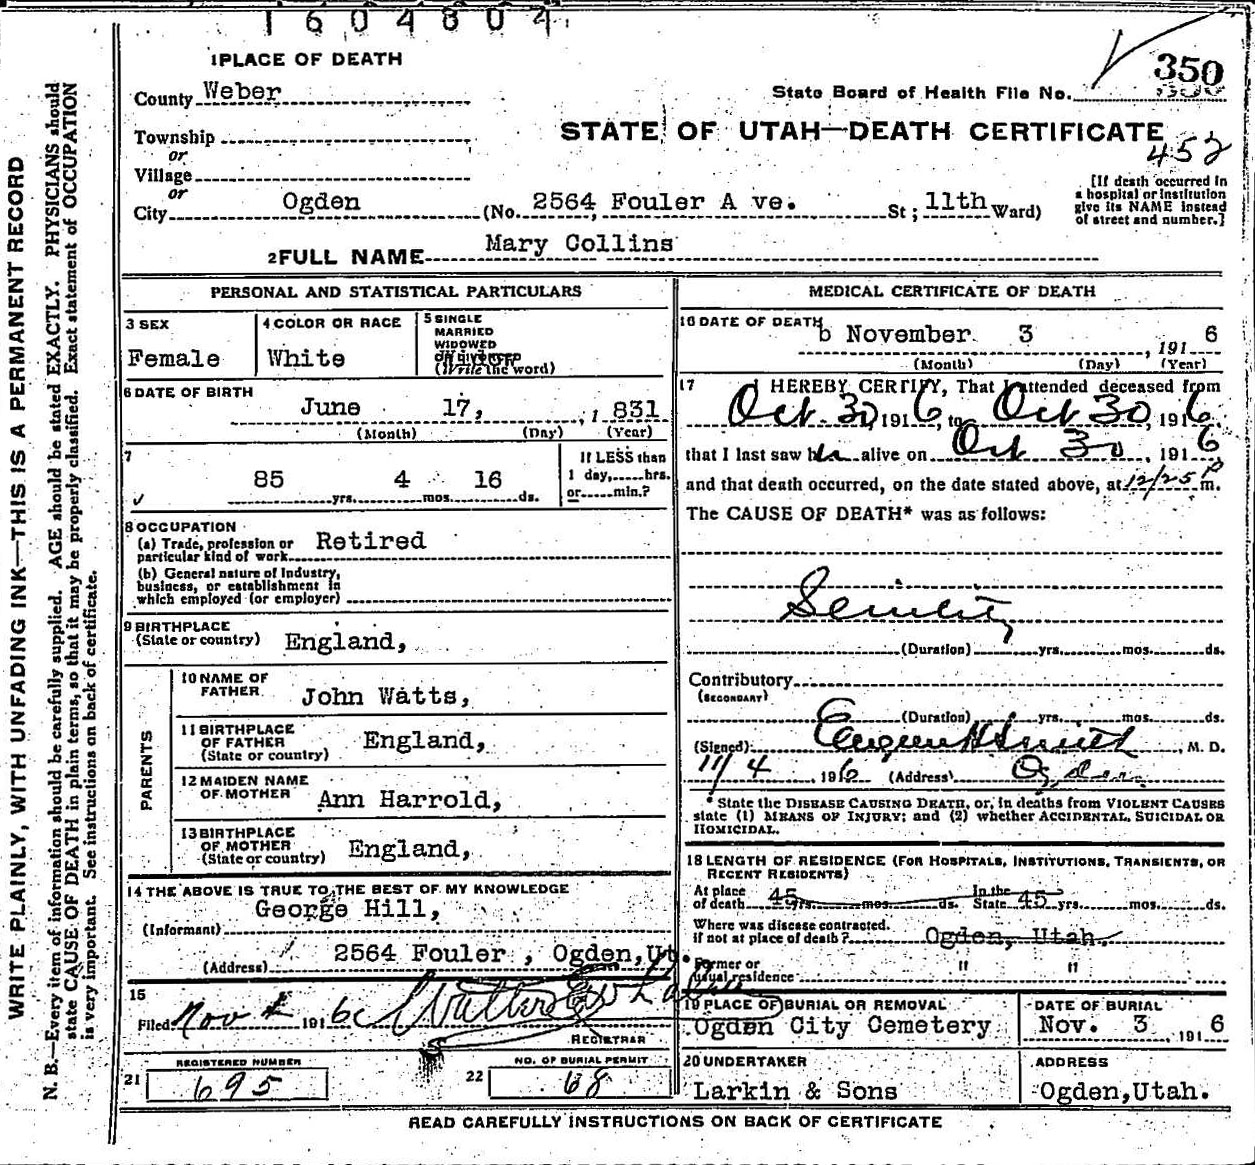 1604804
1 PLACE OF DEATH
County Weber
State Board of Health File No. 350
Township
or
Village
or
STATE OF UTAH—DEATH CERTIFICATE
452
City Ogden (No. 2564 Fouler A ve. St; 11th Ward)
[If death occurred in
a hospital or institution
give its NAME instead
of street and number.]
2 FULL NAME Mary Collins
PERSONAL AND STATISTICAL PARTICULARS
3 SEX
Female
4 COLOR OR RACE
White
5 SINGLE
MARRIED
WIDOWED
OR DIVORCED
(Write the word)
6 DATE OF BIRTH
June 17, 1831
(Month) (Day) (Year)
7
85 yrs. 4 mos. 16 ds.
If LESS than
1 day, hrs.
or min.?
8 OCCUPATION
(a) Trade, profession or
particular kind of work Retired
(b) General nature of Industry,
business, or establishment in
which employed (or employer)
9 BIRTHPLACE
(State or country) England,
PARENTS
10 NAME OF
FATHER John Watts,
11 BIRTHPLACE
OF FATHER
(State or country) England,
12 MAIDEN NAME
OF MOTHER Ann Harrold,
13 BIRTHPLACE
OF MOTHER
(State or country) England,
14 THE ABOVE IS TRUE TO THE BEST OF MY KNOWLEDGE
George Hill,
(Informant)
2564 Fouler , Ogden,Ut.
(Address)
15
Filed Nov 1916
REGISTRAR
REGISTERED NUMBER
21 695
NO. OF BURIAL PERMIT
22 68
MEDICAL CERTIFICATE OF DEATH
16 DATE OF DEATH
b November 3, 1916
(Month) (Day) (Year)
17 I HEREBY CERTIFY, That I attended deceased from
Oct. 30, 1916, to Oct 30, 1916,
that I last saw her alive on Oct 30, 1916
and that death occurred, on the date stated above, at 12/25 P m.
The CAUSE OF DEATH* was as follows:
Senility
(Duration) yrs. mos. ds.
Contributory
(SECONDARY)
(Duration) yrs. mos. ds.
(Signed) Eugene H Smith, M. D.
11/4, 1916 (Address) Ogden
* State the DISEASE CAUSING DEATH, or, in deaths from VIOLENT CAUSES
state (1) MEANS OF INJURY; and (2) whether ACCIDENTAL, SUICIDAL OR
HOMICIDAL.
18 LENGTH OF RESIDENCE (FOR HOSPITALS, INSTITUTIONS, TRANSIENTS, OR
RECENT RESIDENTS)
At place
of death 45 yrs. mos. ds.
In the
State 45 yrs. mos. ds.
Where was disease contracted,
if not at place of death? Ogden, Utah.
Former or
usual residence " "
19 PLACE OF BURIAL OR REMOVAL
Ogden City Cemetery
DATE OF BURIAL
Nov. 3, 1916
20 UNDERTAKER
Larkin & Sons
ADDRESS
Ogden,Utah.
READ CAREFULLY INSTRUCTIONS ON BACK OF CERTIFICATE
WRITE PLAINLY, WITH UNFADING INK—THIS IS A PERMANENT RECORD
N. B.—Every item of information should be carefully supplied. AGE should be stated EXACTLY. PHYSICIANS should
state CAUSE OF DEATH in plain terms, so that it may be properly classified. Exact statement of OCCUPATION
is very important. See instructions on back of certificate.